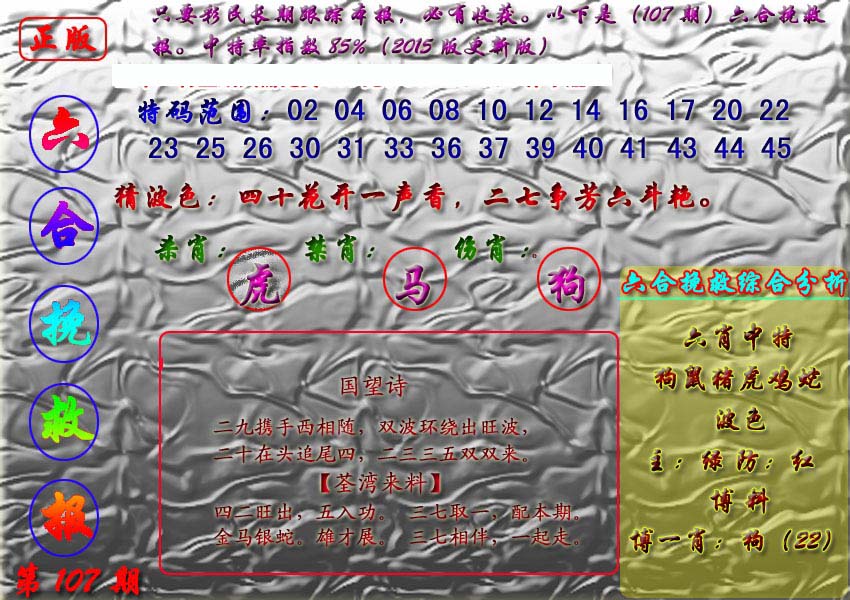 正版
只要彩民长期跟踪本报，必有收获。以下是（107期）六合挽救
报。中特率指数85%（2015版更新版）
特码范围：02 04 06 08 10 12 14 16 17 20 22
23 25 26 30 31 33 36 37 39 40 41 43 44 45
猜波色：四十花开一声香，二七争芳六斗艳。
杀肖：虎 禁肖：马 伤肖：狗
六
合
挽
救
报
第107期
国望诗
二九携手两相随，双波环绕出旺波，
二十在头追尾四，二三三五双双来。
【荃湾来料】
四二旺出，五入功。 三七取一，配本期。
金马银蛇。雄才展。 三七相伴，一起走。
六合挽救综合分析
六肖中特
狗鼠猪虎鸡蛇
波色
主：绿防：红
博料
博一肖：狗（22）